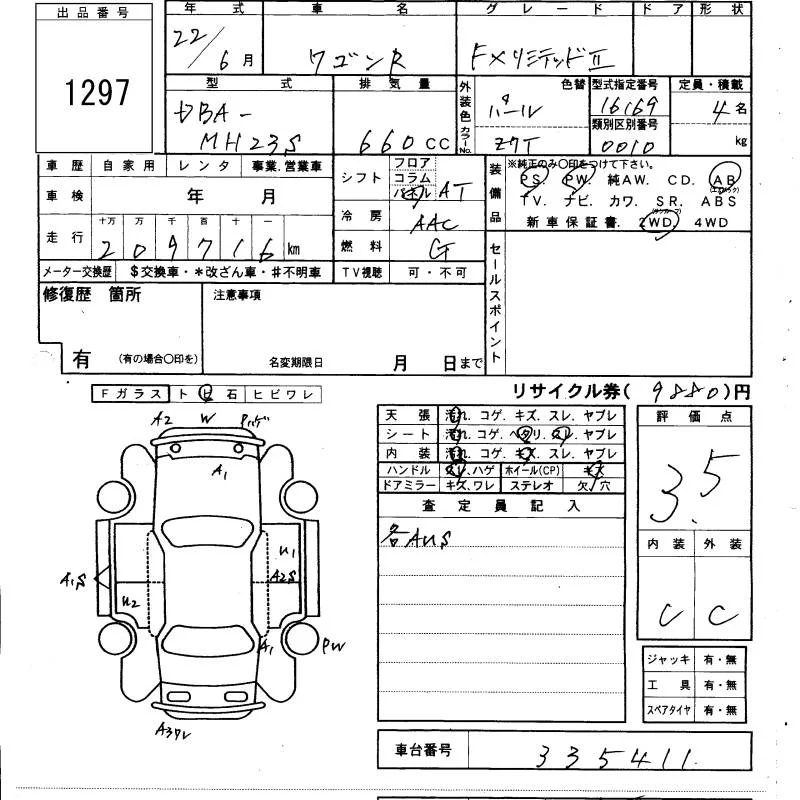 出品番号
1297
年式 車名 グレード ドア 形状
22/6月 ワゴンR FXリミテッドII
型式 排気量 外装色 カラーNo. 色替 型式指定番号 定員・積載
DBA-MH23S 660CC パール Z7T 16169 4名
類別区別番号
0010 kg
車歴 自家用 レンタ 事業.営業車
車検 年 月
走行 十万 万 千 百 十 一
209716km
メーター交換歴 $交換車・*改ざん車・#不明車
シフト フロア コラム パネル AT
冷房 AAC
燃料 G
TV視聴 可・不可
装備品 ※純正のみ〇印をつけて下さい。
PS. PW. 純AW. CD. AB
TV. ナビ. カワ. SR. ABS
新車保証書. 2WD. 4WD
修復歴 箇所
有 (有の場合〇印を)
注意事項
名変期限日 月 日まで
セールスポイント
Fガラス トビ石 ヒビワレ
リサイクル券(9880)円
A2 W Pハゲ
A1
U1
A1S A2S
U2
A1 PW
A3ワレ
天張 汚れ. コゲ. キズ. スレ. ヤブレ
シート 汚れ. コゲ. ヘタリ. スレ. ヤブレ
内装 汚れ. コゲ. キズ. スレ. ヤブレ
ハンドル スレ.ハゲ ホイール(CP) キズ
ドアミラー キズ.ワレ ステレオ 欠.穴
査定員記入
各AUS
評価点
3.5
内装 外装
C C
ジャッキ 有・無
工具 有・無
スペアタイヤ 有・無
車台番号 335411.